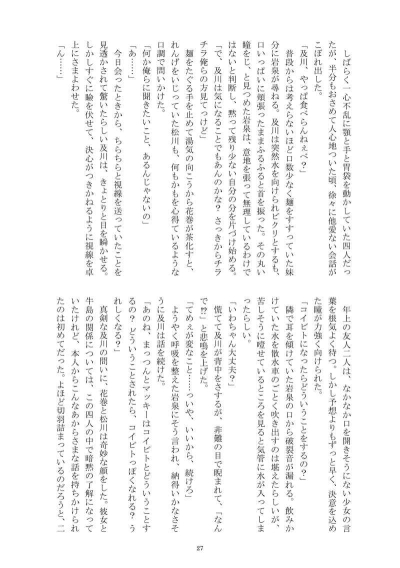 しばらく一心不乱に顎と手と胃袋を動かしていた四人だっ
たが、半分もおさめて人心地ついた頃、徐々に他愛ない会話が
こぼれ出した。
「及川、やっぱ食べらんねぇべ？」
普段からは考えらないほど口数少なく麺をすすっていた妹
分に岩泉が尋ねる。及川は突然水を向けられビクリとするも、
口いっぱいに頬張ったままふるふると首を振った。その丸い
瞳をじ、と見つめた岩泉は、意地を張って無理しているわけで
はないと判断し、黙って残り少ない自分の分を片づけ始める。
「で、及川は気になることでもあんのかな？ さっきからチラ
チラ俺らの方見てっけど」
麺をたぐる手を止めて湯気の向こうから花巻が茶化すと、
れんげをいじっていた松川も、何もかもを心得ているような
口調で問いかけた。
「何か俺らに聞きたいこと、あるんじゃないの」
「あ……」
今日会ったときから、ちらちらと視線を送っていたことを
見透かされて驚いたらしい及川は、きょとりと目を瞬かせる。
しかしすぐに瞼を伏せて、決心がつきかねるように視線を卓
上にさまよわせた。
「ん……」
年上の友人二人は、なかなか口を開きそうにない少女の言
葉を根気よく待つ。しかし予想よりもずっと早く、決意を込め
た瞳が力強く向けられた。
「コイビトになったらどういうことをするの？」
隣で耳を傾けていた岩泉の口から破裂音が漏れる。飲みか
けていた水を散水車のごとく吹き出すのは堪えたらしいが、
苦しそうに噎せているところを見ると気管に水が入ってしま
ったらしい。
「いわちゃん大丈夫？」
慌てて及川が背中をさするが、非難の目で睨まれて、「なん
で!?」と悲鳴を上げた。
「てめぇが変なこと……っいや、いいから、続けろ」
ようやく呼吸を整えた岩泉にそう言われ、納得いかなさそ
うに及川は話を続けた。
「あのね、まっつんとマッキーはコイビトとどういうことす
るの？ どういうことされたら、コイビトっぽくなれる？ う
れしくなる？」
真剣な及川の問いに、花巻と松川は奇妙な顔をした。彼女と
牛島の関係については、この四人の中で暗黙の了解になって
いたけれど、本人からこんなあからさまな話を持ちかけられ
たのは初めてだった。よほど切羽詰まっているのだろうと、二
27